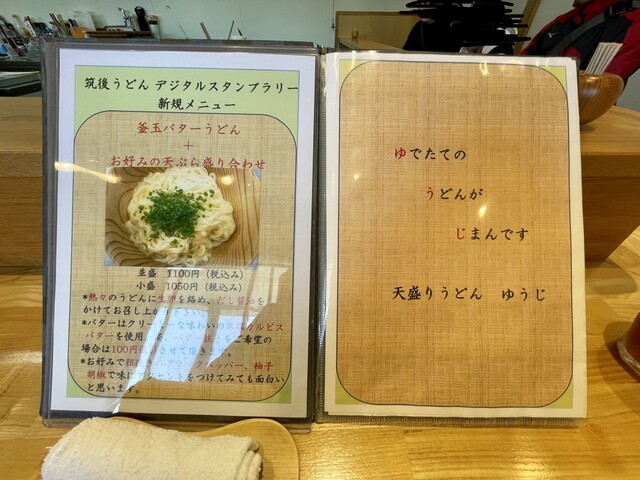 筑後うどん デジタルスタンプラリー
新規メニュー
釜玉バターうどん
+
お好みの天ぷら盛り合わせ
並盛 1100円（税込み）
小盛 1050円（税込み）
*熱々のうどんに生卵を絡め、だし醤油を
かけてお召し上が
*バターはクリー な味わいの カルピス
バターを使用 バター抜きをご希望の
場合は100円 させて頂きます。
*お好みで粗 ペッパー、柚子
胡椒で味に をつけてみても面白い
と思います。
ゆでたての
うどんが
じまんです
天盛りうどん ゆうじ